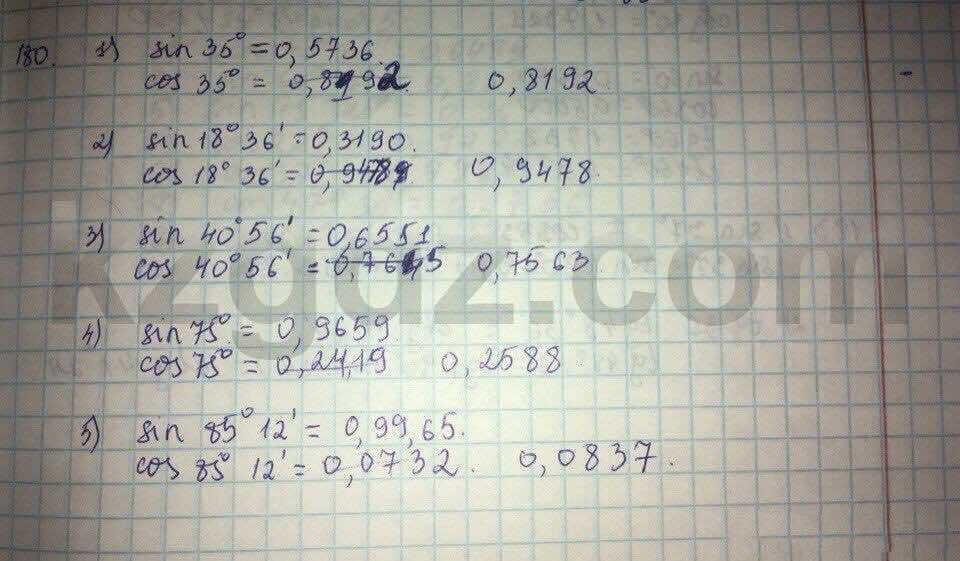 180. 1) sin 35° = 0,5736.
cos 35° = 0,8192. 0,8192.
2) sin 18° 36' = 0,3190.
cos 18° 36' = 0,9478. 0,9478.
3) sin 40° 56' = 0,6551
cos 40° 56' = 0,7645 0,7563.
4) sin 75° = 0,9659
cos 75° = 0,2419 0,2588
5) sin 85° 12' = 0,99,65.
cos 85° 12' = 0,0732. 0,0837.
kzgdz.com